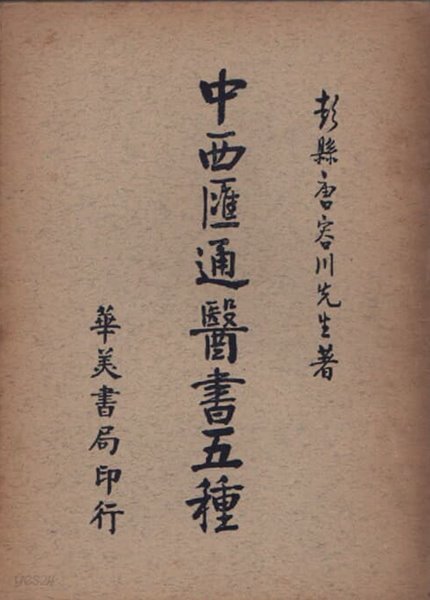 彭縣唐容川先生著
中西匯通醫書五種
華美書局印行
yes24